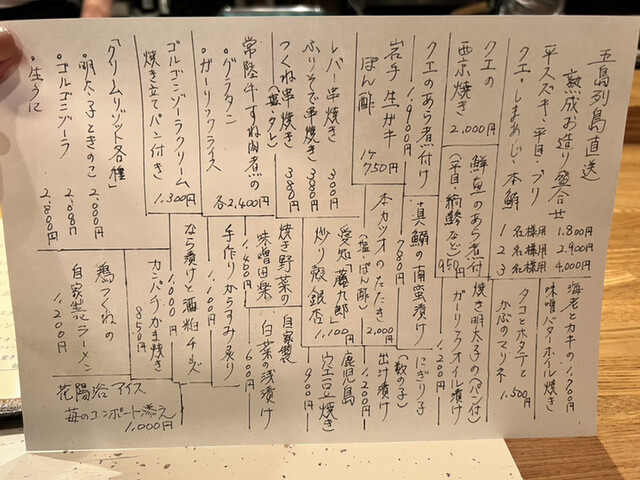 五島列島直送
熟成お造り盛合せ
平スズキ・平目・ブリ
クエ・しまあじ・本鮪
1名様用 1.800円
2名様用 2.900円
3名様用 4.000円
クエの
西京焼き
2.000円
クエのあら煮付け
1.900円
鮮魚のあら煮付
(平目・縞鯵など)
950円
岩手 生ガキ
ぽん酢
1ヶ750円
レバー串焼き 300円
ふりそで串焼き 380円
つくね串焼き 380円
(塩・タレ)
常陸牛すね肉煮の
・グラタン
・ガーリックライス
各2,400円
ゴルゴンゾーラクリーム
焼き立てパン付き)
1.300円
「クリームリゾット各種」
・明太子ときのこ 2.000円
・ゴルゴンゾーラ 2.000円
・生うに 2.800円
海老とカキの
味噌バターホイル焼き
1,700円
タコとホタテと
かぶのマリネ
1.500円
焼き明太子の(パン付)
ガーリックオイル漬け
1,200円
真鰯の南蛮漬け
780円
にぎり子
(数の子)
出汁漬け
1,200円
本カツオのたたき
(塩・ぽん酢)
2,000円
鹿児島
空豆焼き
900円
愛知「藤九郎」
炒り殻銀杏
1,100円
焼き野菜の
味噌田楽
1,400円
自家製
白菜の浅漬け
600円
手作りからすみ炙り
1,100円
なら漬けと酒粕チーズ
1,000円
カンパチかま焼き
850円
鶏つくねの
自家製ラーメン
1,200円
花陽浴アイス
苺のコンポート添え
1,000円